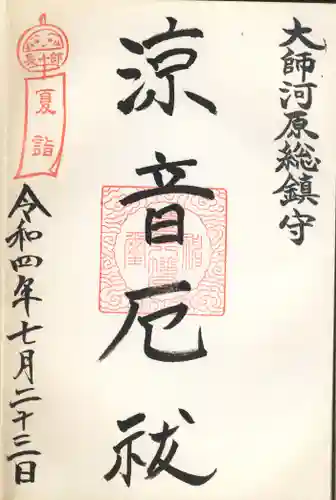 大師河原総鎮守
涼音厄祓
夏詣
令和四年七月二十三日